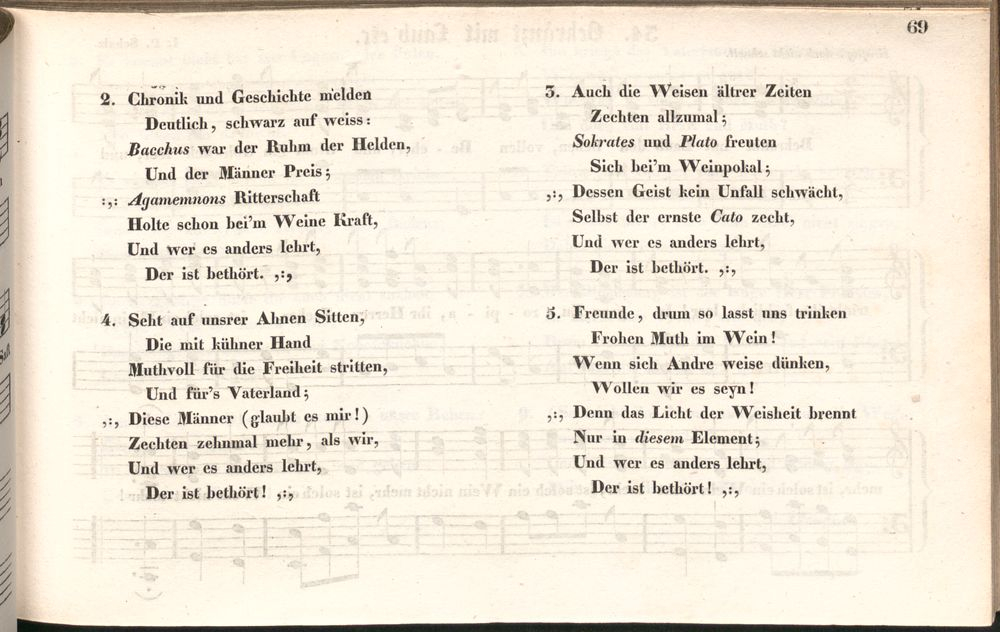 69
2. Chronik und Geschichte melden
Deutlich, schwarz auf weiss:
Bacchus war der Ruhm der Helden,
Und der Männer Preis;
:,: Agamemnons Ritterschaft
Holte schon bei'm Weine Kraft,
Und wer es anders lehrt,
Der ist bethört. ,:,
4. Seht auf unsrer Ahnen Sitten,
Die mit kühner Hand
Muthvoll für die Freiheit stritten,
Und für's Vaterland;
,:, Diese Männer (glaubt es mir!)
Zechten zehnmal mehr, als wir,
Und wer es anders lehrt,
Der ist bethört! ,:,
3. Auch die Weisen ältrer Zeiten
Zechten allzumal;
Sokrates und Plato freuten
Sich bei'm Weinpokal;
,:, Dessen Geist kein Unfall schwächt,
Selbst der ernste Cato zecht,
Und wer es anders lehrt,
Der ist bethört. ,:,
5. Freunde, drum so lasst uns trinken
Frohen Muth im Wein!
Wenn sich Andre weise dünken,
Wollen wir es seyn!
,:, Denn das Licht der Weisheit brennt
Nur in diesem Element;
Und wer es anders lehrt,
Der ist bethört! ,:,